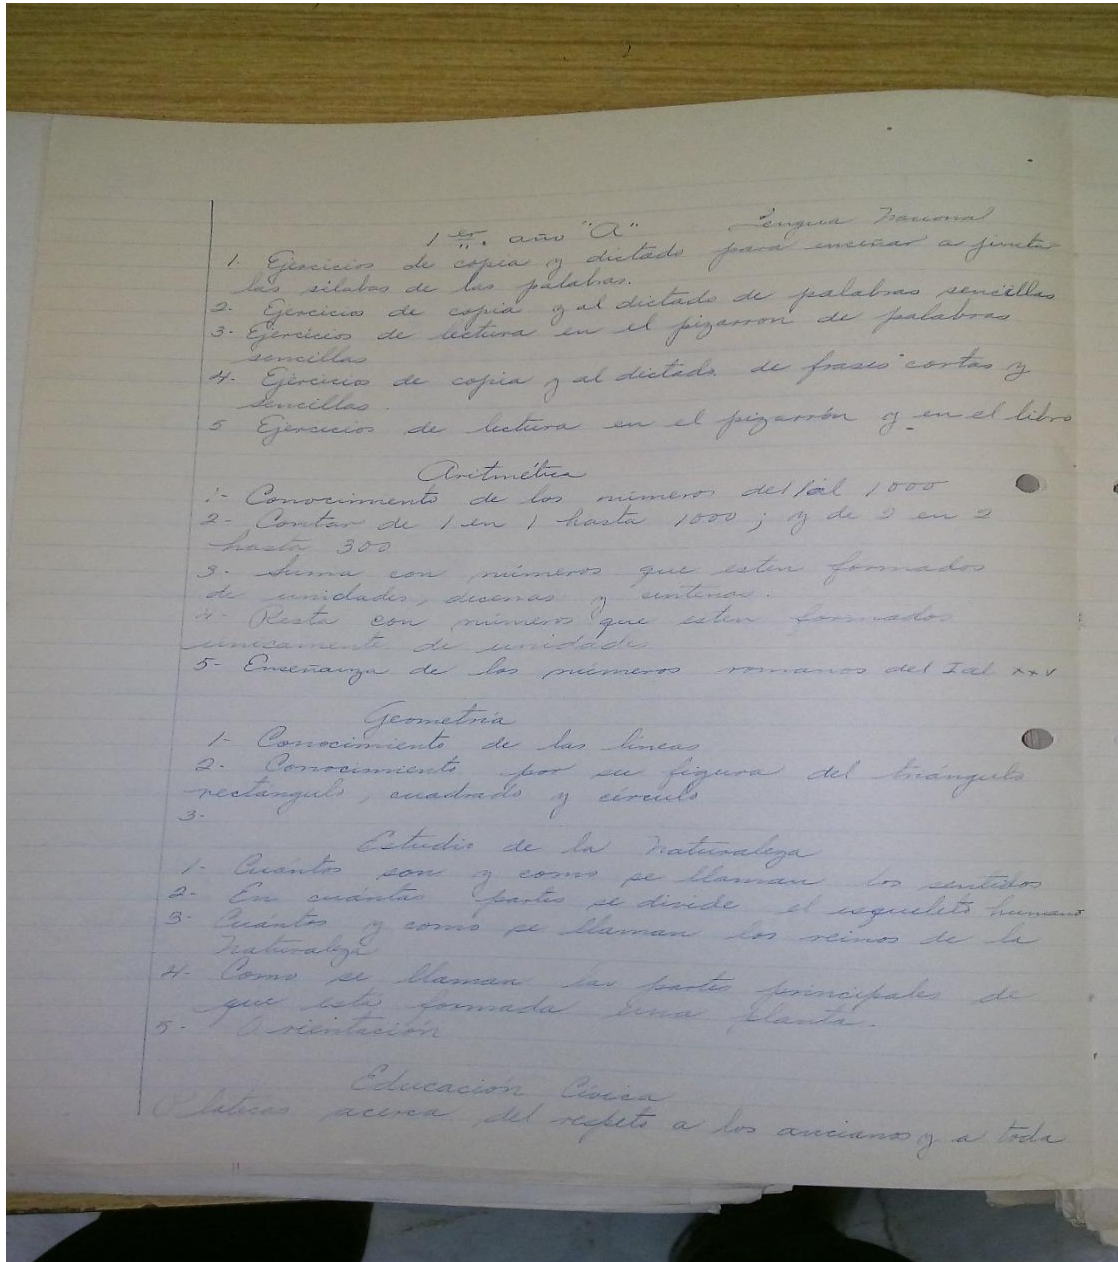 1er. año "A" Lengua Nacional
1. Ejercicios de copia y dictado para enseñar a juntar
las silabas de las palabras.
2. Ejercicios de copia y al dictado de palabras sencillas
3- Ejercicios de lectura en el pizarron de palabras
sencillas
4- Ejercicios de copia y al dictado de frases cortas y
sencillas.
5 Ejercicios de lectura en el pizarrón y en el libro
Aritmética
1- Conocimiento de los números del 1 al 1000
2- Contar de 1 en 1 hasta 1000; y de 2 en 2
hasta 300
3- Suma con números que esten formados
de unidades, decenas y centenas.
4- Resta con números que esten formados
unicamente de unidades
5- Enseñanza de los números romanos del I al XXV
Geometría
1- Conocimiento de las líneas
2- Conocimiento por su figura del triángulo
rectangulo, cuadrado y círculo
3-
Estudio de la Naturaleza
1- Cuántos son y como se llaman los sentidos
2- En cuántas partes se divide el esqueleto humano
3- Cuántos y como se llaman los reinos de la
Naturaleza
4- Como se llaman las partes principales de
que está formada una planta.
5- Orientación
Educación Cívica
Platicas acerca del respeto a los ancianos y a toda